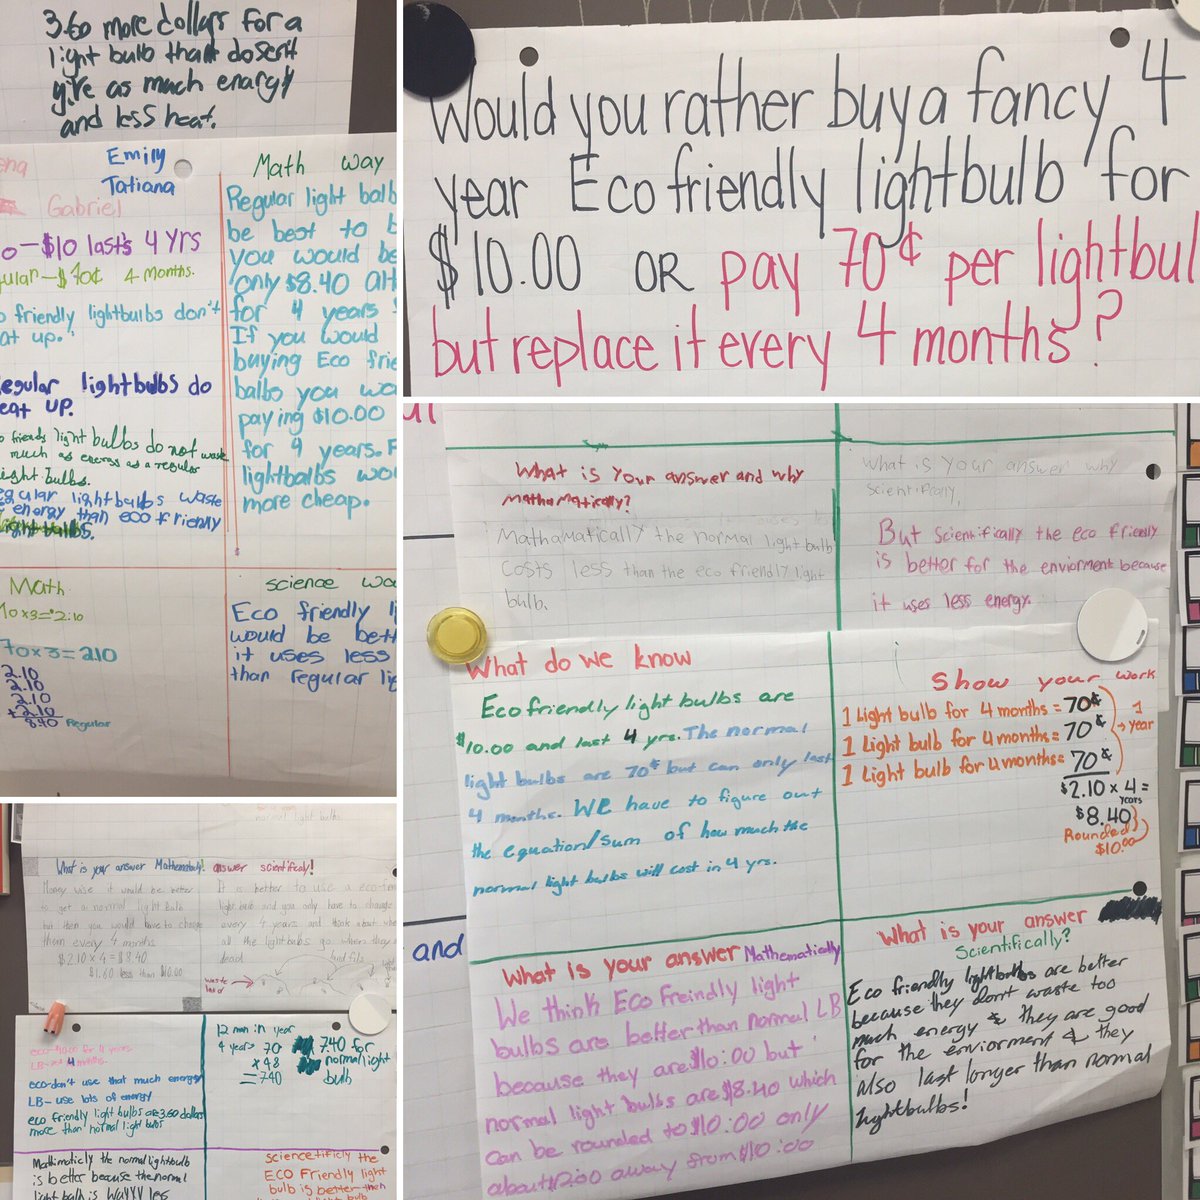 3.60 more dollars for a
light bulb that doesent
give as much enargy
and less heat.
Emily
Tatiana
Gabriel
o-$10 lasts 4 yrs
gular-$70¢ 4 Months.
o friendly lightbulbs don't
at up.
egular lightbulbs do
eat up.
o friends light bulbs do not waste
much as energy as a regular
light bulbs.
egular lightbulbs waste
energy than eco friendly
lightbulbs.
Math way
Regular light balb
be best to b
you would be
only $8.40 alt
for 4 years
If you would
buying Eco frie
balbs you wo
paying $10.00
for 4 years.
lightbalbs wou
more cheap.
Math
70x3=2.10
70x3=2.10
2.10
2.10
2.10
+2.10
8.40 Regular
science wa
Eco friendly l
would be bett
it uses less
than regular lig
Would you rather buy a fancy 4
year Eco friendly lightbulb for
$10.00 OR pay 70¢ per lightbul
but replace it every 4 months?
What is your answer and why
mathamatically?
Mathamatically the normal light bulb
costs less than the eco friendly light
bulb.
What is your answer why
scientifically,
But scientifically the eco friendly
is better for the enviorment because
it uses less energy.
What do we know
Eco friendly light bulbs are
$10.00 and last 4 yrs. The normal
light bulbs are 70¢ but can only last
4 months. We have to figure out
the equation/sum of how much the
normal light bulbs will cost in 4 yrs.
Show your work
1 Light bulb for 4 months = 70¢
1 Light bulb for 4 months = 70¢
1 Light bulb for 4 months = 70¢
1
year
$2.10 x 4 =
years
$8.40
Rounded
$10.00
and
What is your answer Mathematically
We think Eco Freindly light
bulbs are better than normal LB
because they are $10:00 but
normal light bulbs are $8.40 which
can be rounded to $10:00 only
about $2:00 away from $10:00
What is your answer
Scientifically?
Eco friendly lightbulbs are better
because they dont waste too
much energy & they are good
for the enviorment & they
also last longer than normal
lightbulbs!
normal light bulbs.
What is your answer Mathematicly!
Money wise it would be better
to get a normal light bulb
but then you would have to change
tham every 4 months
$2.10 x 4 = $8.40
$1.60 less than $10.00
answer scientificaly!
It is better to use a eco-
light bulb and you only have to change
every 4 years and think about whe
all the lightbulbs go when they
dead
land fills
waste
land
eco-10.00 for 4 years
4 months.
eco-don't use that much energy
LB-use lots of energy
eco friendly light bulbs are 3.60 dollars
more than normal light bulbs
12 mon in year
4 years
70
x48
=740
740 for
normal light
bulb
Mathimaticly the normal lightbulb
is better because the normal
light bulb is wayyy less
scienceticicly the
ECO Friendly light
bulb is better then